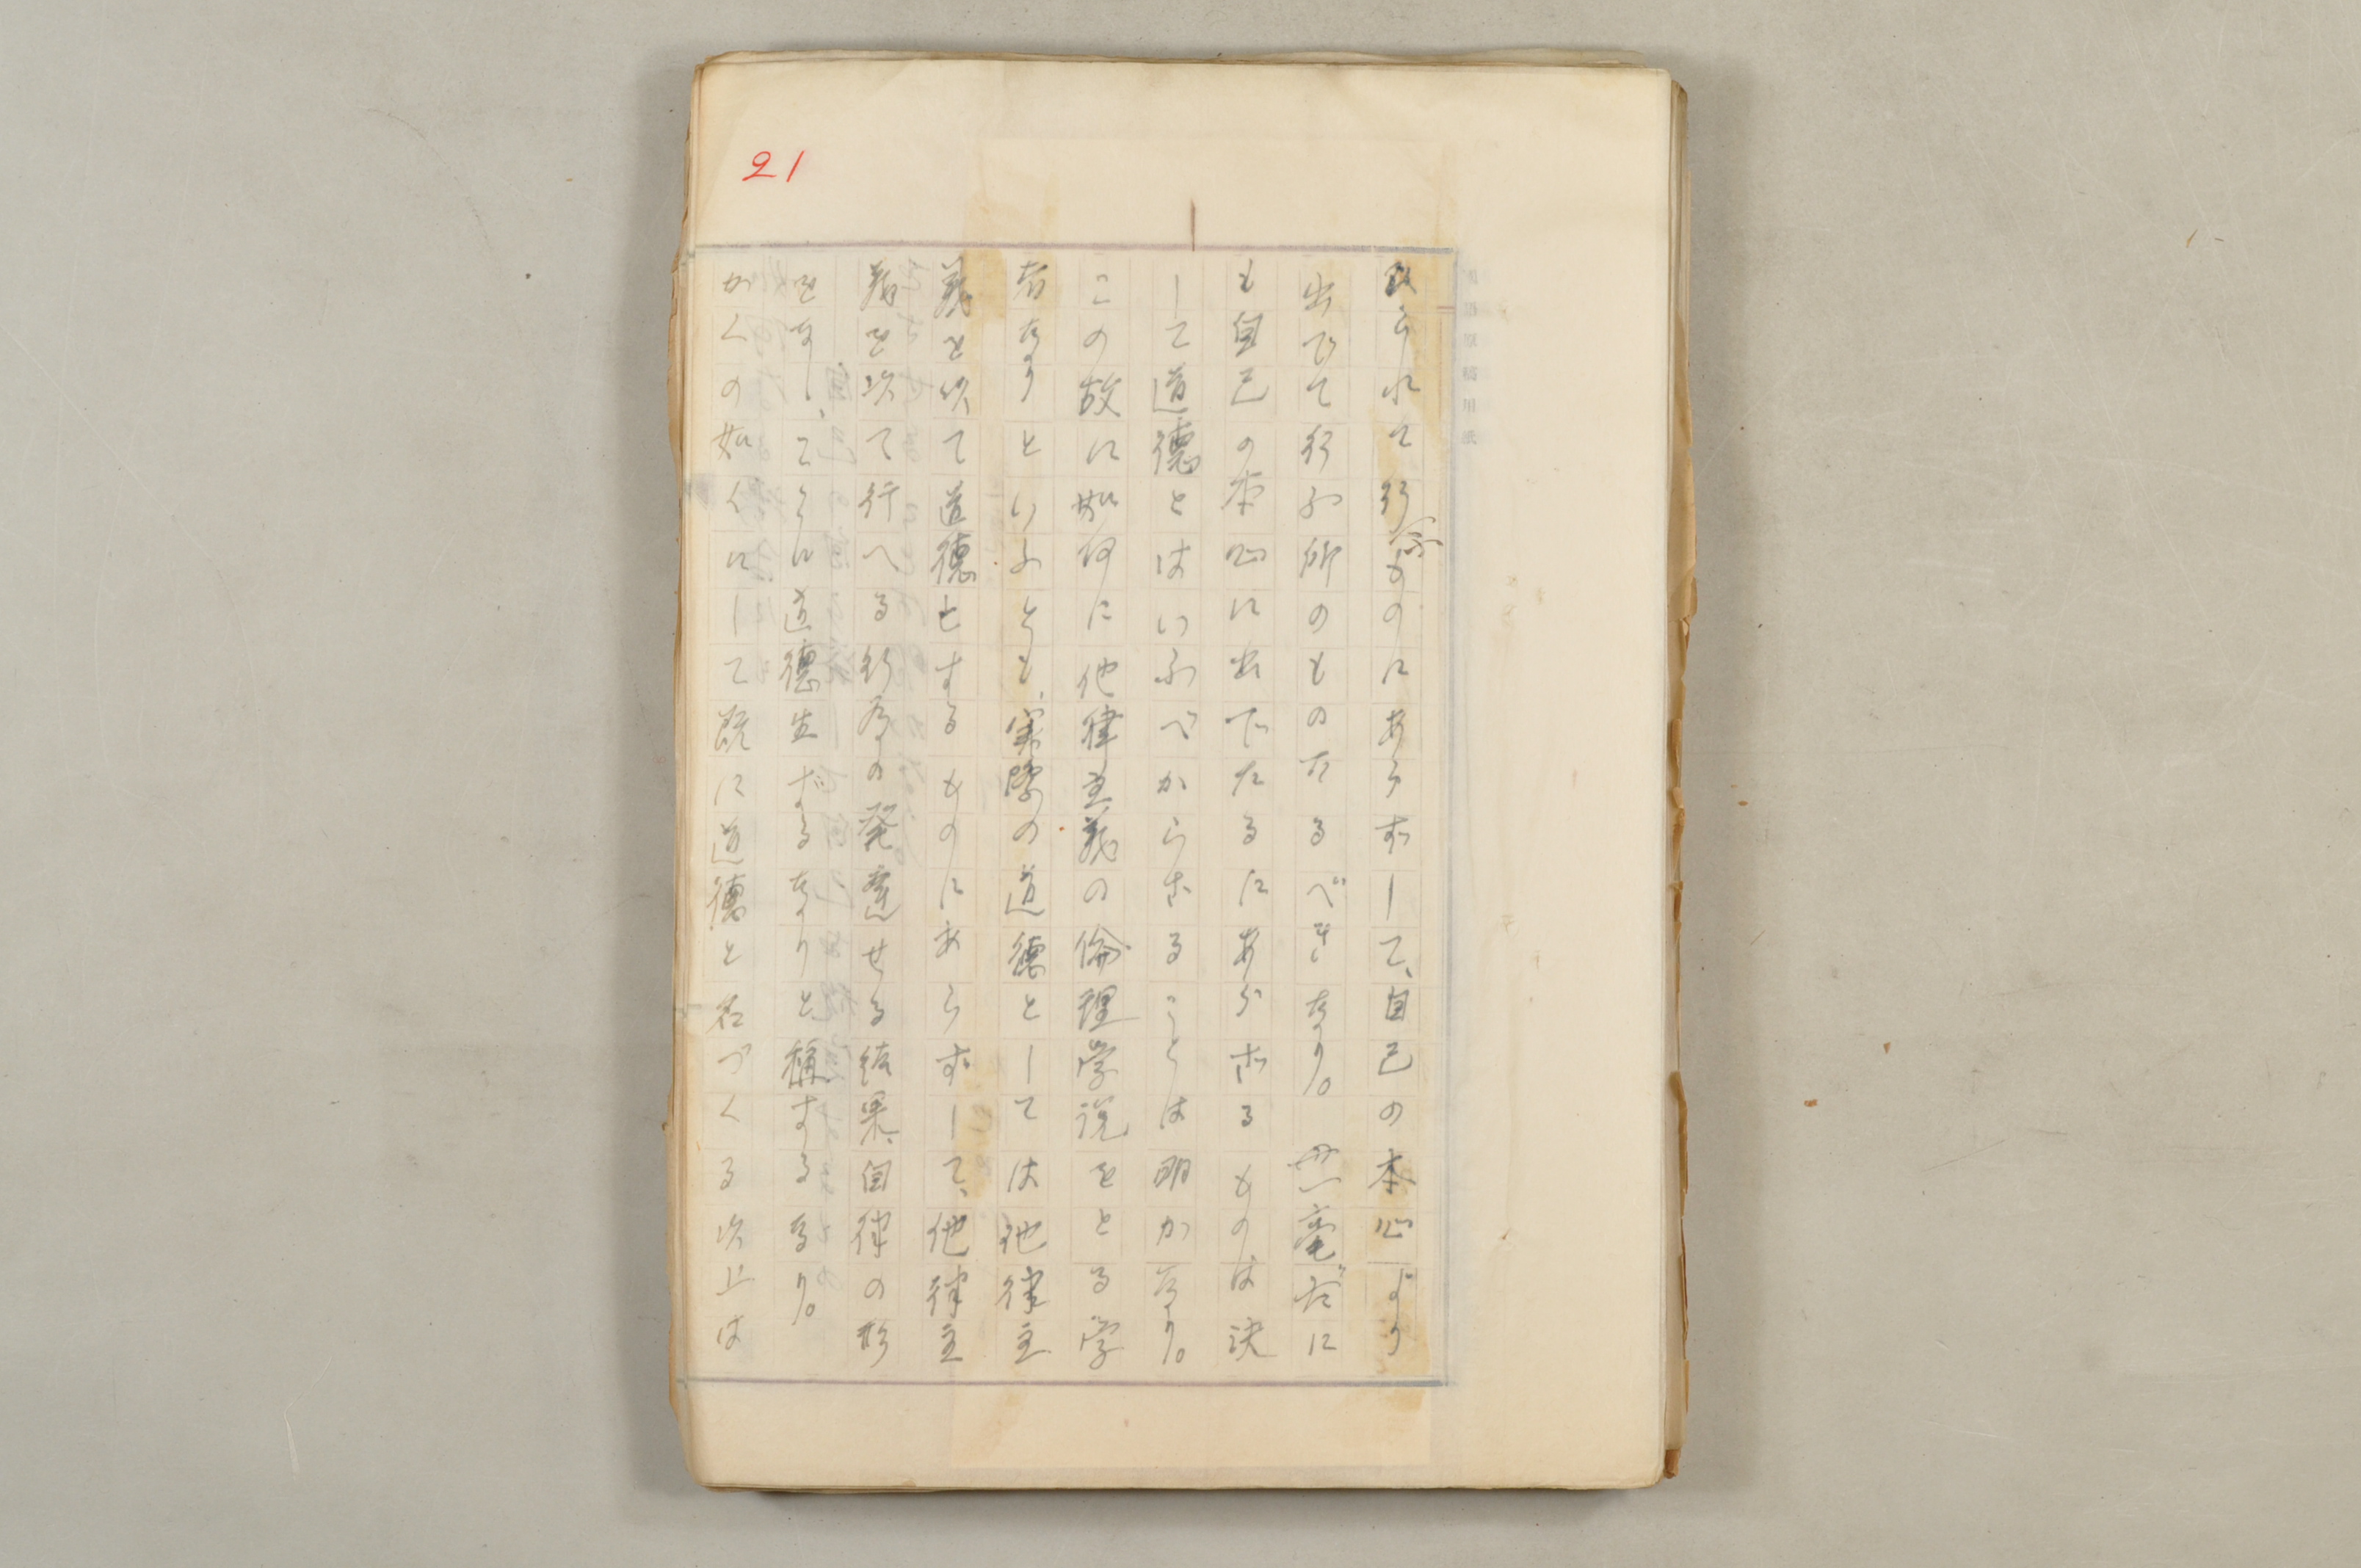 21
られて行ふものにあらずして、自己の本心より
出でて行ふ所のものたるべきなり。一毫だに
も自己の本心に出でたるにあらざるものは決
して道徳とはいふべからざることは明かなり。
この故に如何に他律主義の倫理学説をとる学
者なりといふとも、実際の道徳としては他律主
義を以て道徳とするものにあらずして、他律主
義を以て行へる行為の発達せる結果、自律の形
をなし、こゝに道徳生ずるなりと称するなり。
かくの如くにして既に道徳と名づくる以上は